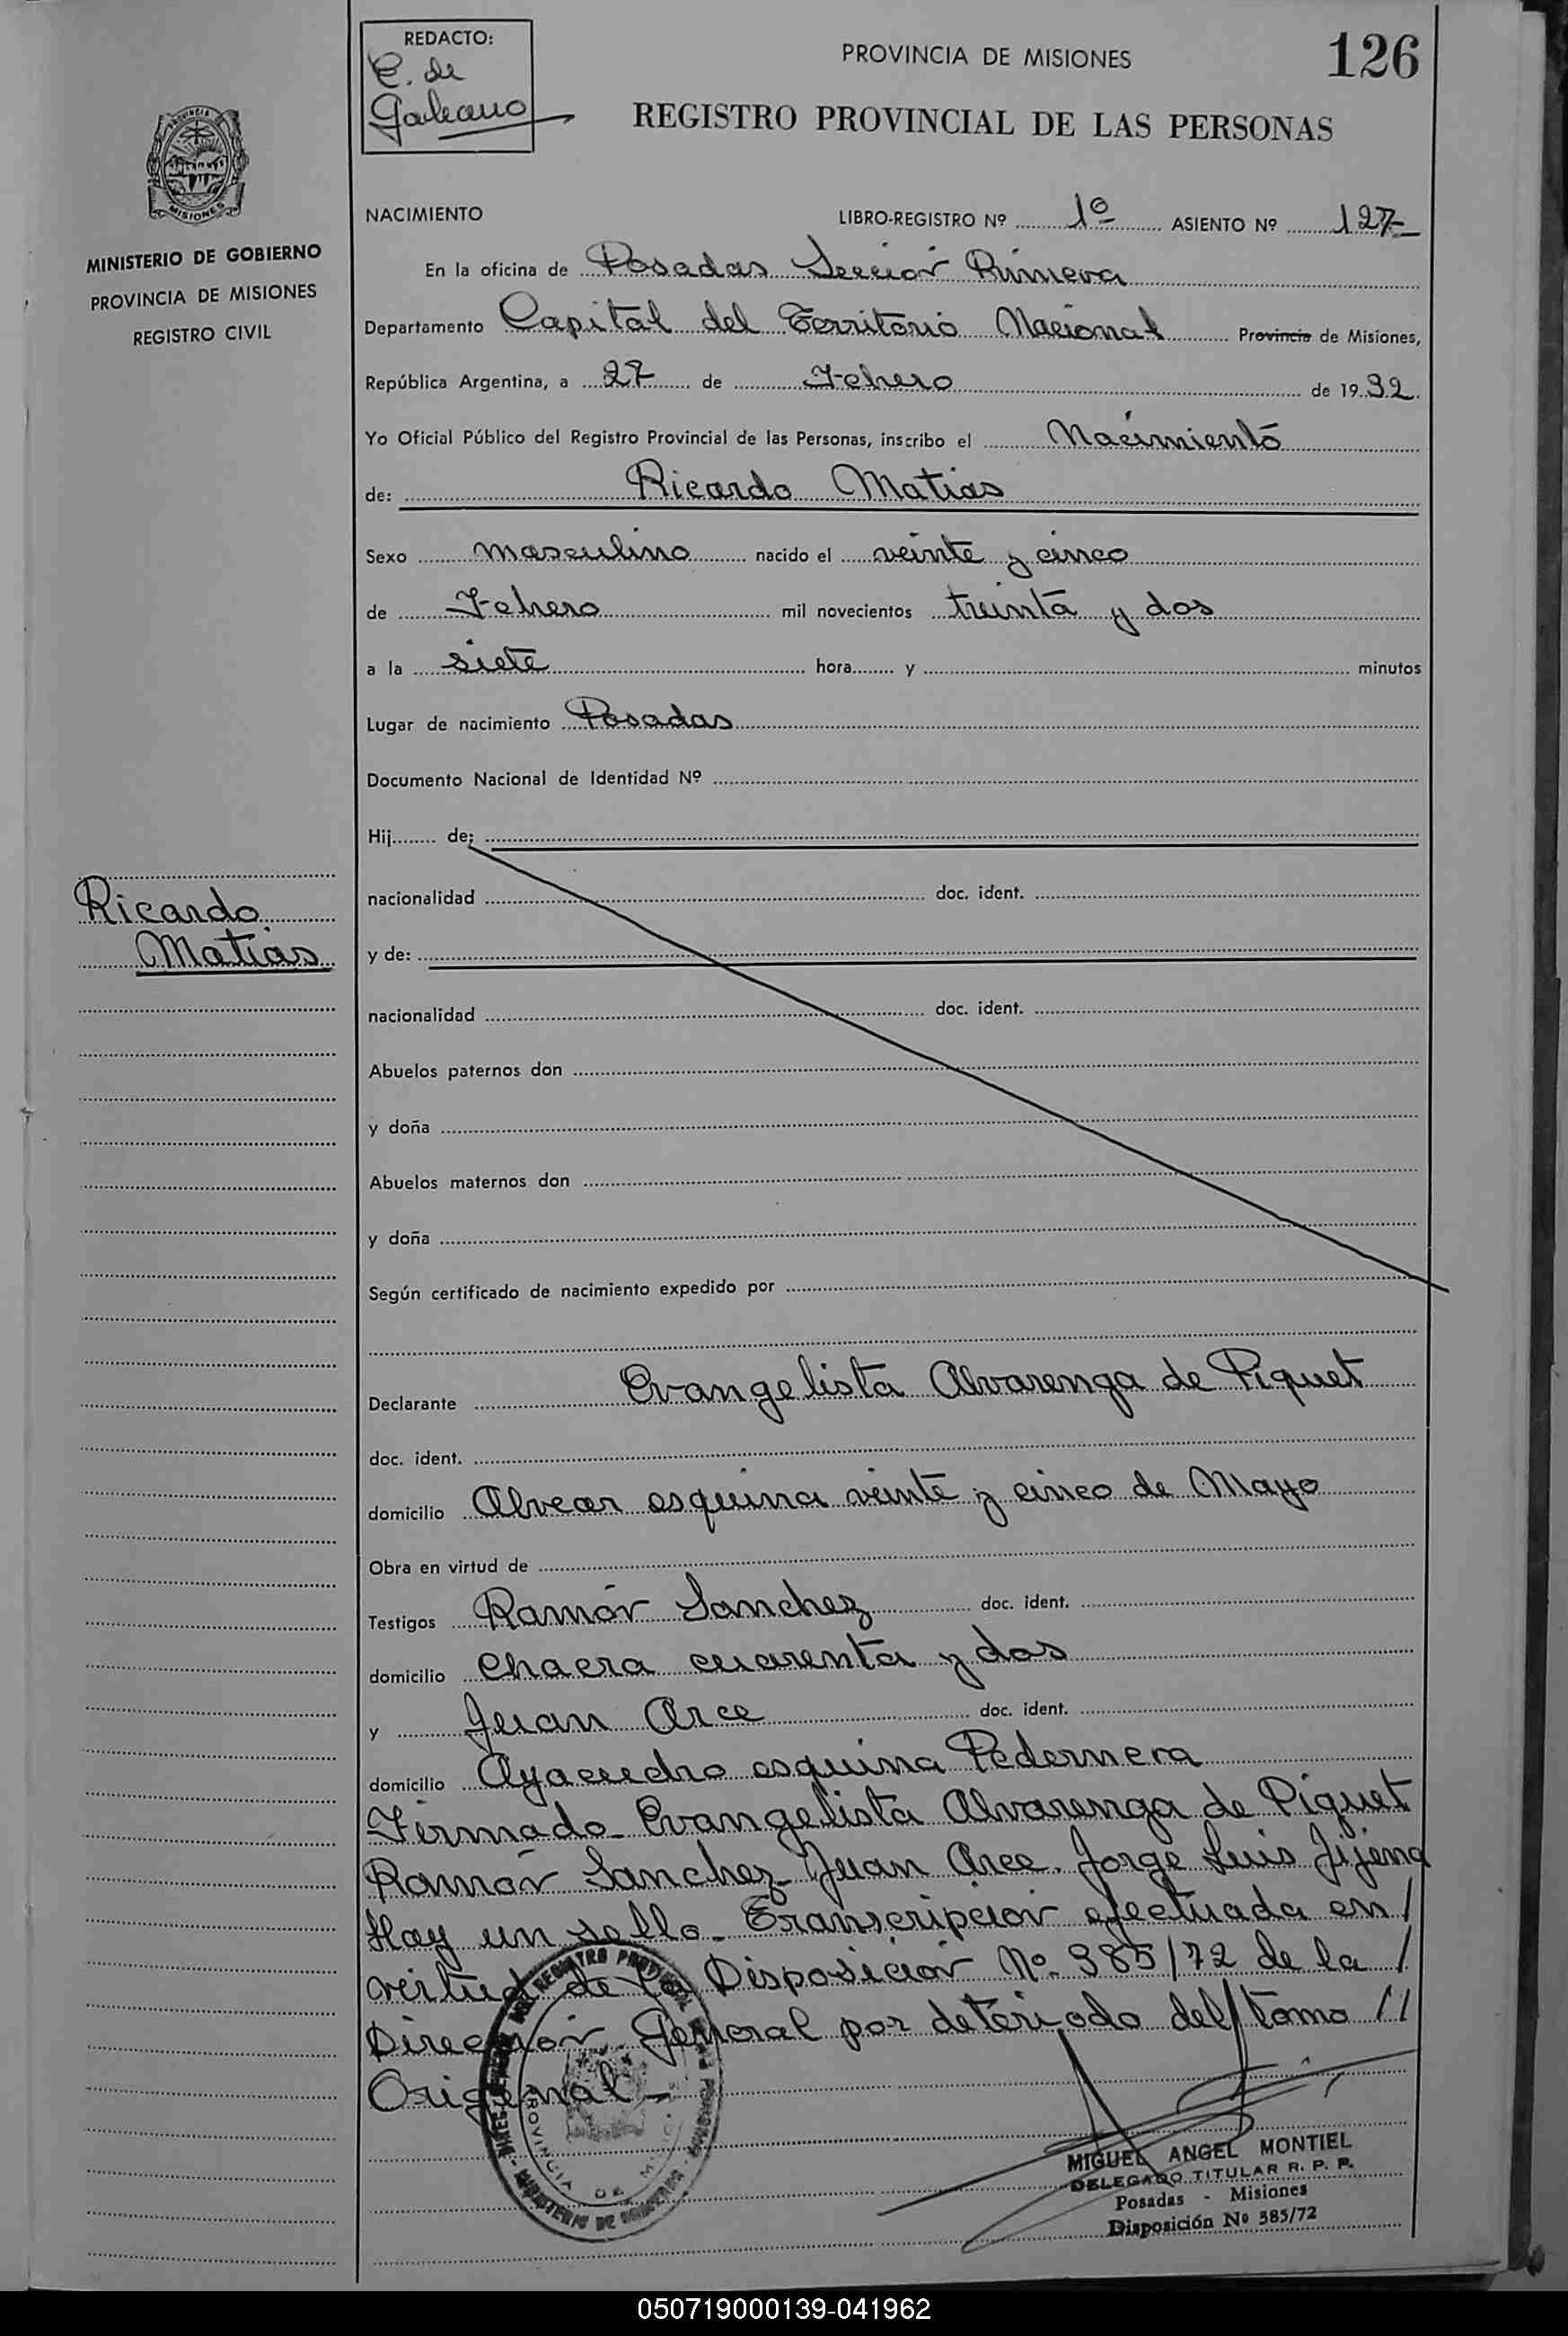 REDACTO:
E. de
Galeano
PROVINCIA DE MISIONES
126
REGISTRO PROVINCIAL DE LAS PERSONAS
MISIONES
MINISTERIO DE GOBIERNO
PROVINCIA DE MISIONES
REGISTRO CIVIL
NACIMIENTO LIBRO-REGISTRO Nº 1º ASIENTO Nº 127
En la oficina de Posadas Sección Primera
Departamento Capital del Territorio Nacional Provincia de Misiones,
República Argentina, a 27 de Febrero de 1932.
Yo Oficial Público del Registro Provincial de las Personas, inscribo el Nacimiento
de: Ricardo Matias
Sexo masculino nacido el veinte y cinco
de Febrero mil novecientos treinta y dos
a la siete hora y minutos
Lugar de nacimiento Posadas
Documento Nacional de Identidad Nº
Hij de:
nacionalidad doc. ident.
Ricardo
Matias
y de:
nacionalidad doc. ident.
Abuelos paternos don
y doña
Abuelos maternos don
y doña
Según certificado de nacimiento expedido por
Declarante Evangelista Alvarenga de Piquet
doc. ident.
domicilio Alvear esquina veinte y cinco de Mayo
Obra en virtud de
Testigos Ramón Sanchez doc. ident.
domicilio Chacra cuarenta y dos
y Juan Arce doc. ident.
domicilio Ayacucho esquina Pedernera
Firmado- Evangelista Alvarenga de Piquet
Ramón Sanchez- Juan Arce. Jorge Luis Jijena
Hay un sello- Transcripción efectuada en /
virtud de la Disposición Nº 385/72 de la /
Dirección General por deteriodo del tomo //
Original-
PROVINCIA DE
MIGUEL ANGEL MONTIEL
DELEGADO TITULAR R. P. P.
Posadas - Misiones
Disposición Nº 385/72
050719000139-041962